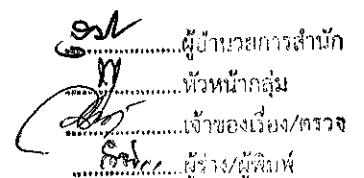 ผู้อำนวยการสำนัก
หัวหน้ากลุ่ม
เจ้าของเรื่อง/ตรวจ
ผู้ร่าง/ผู้พิมพ์